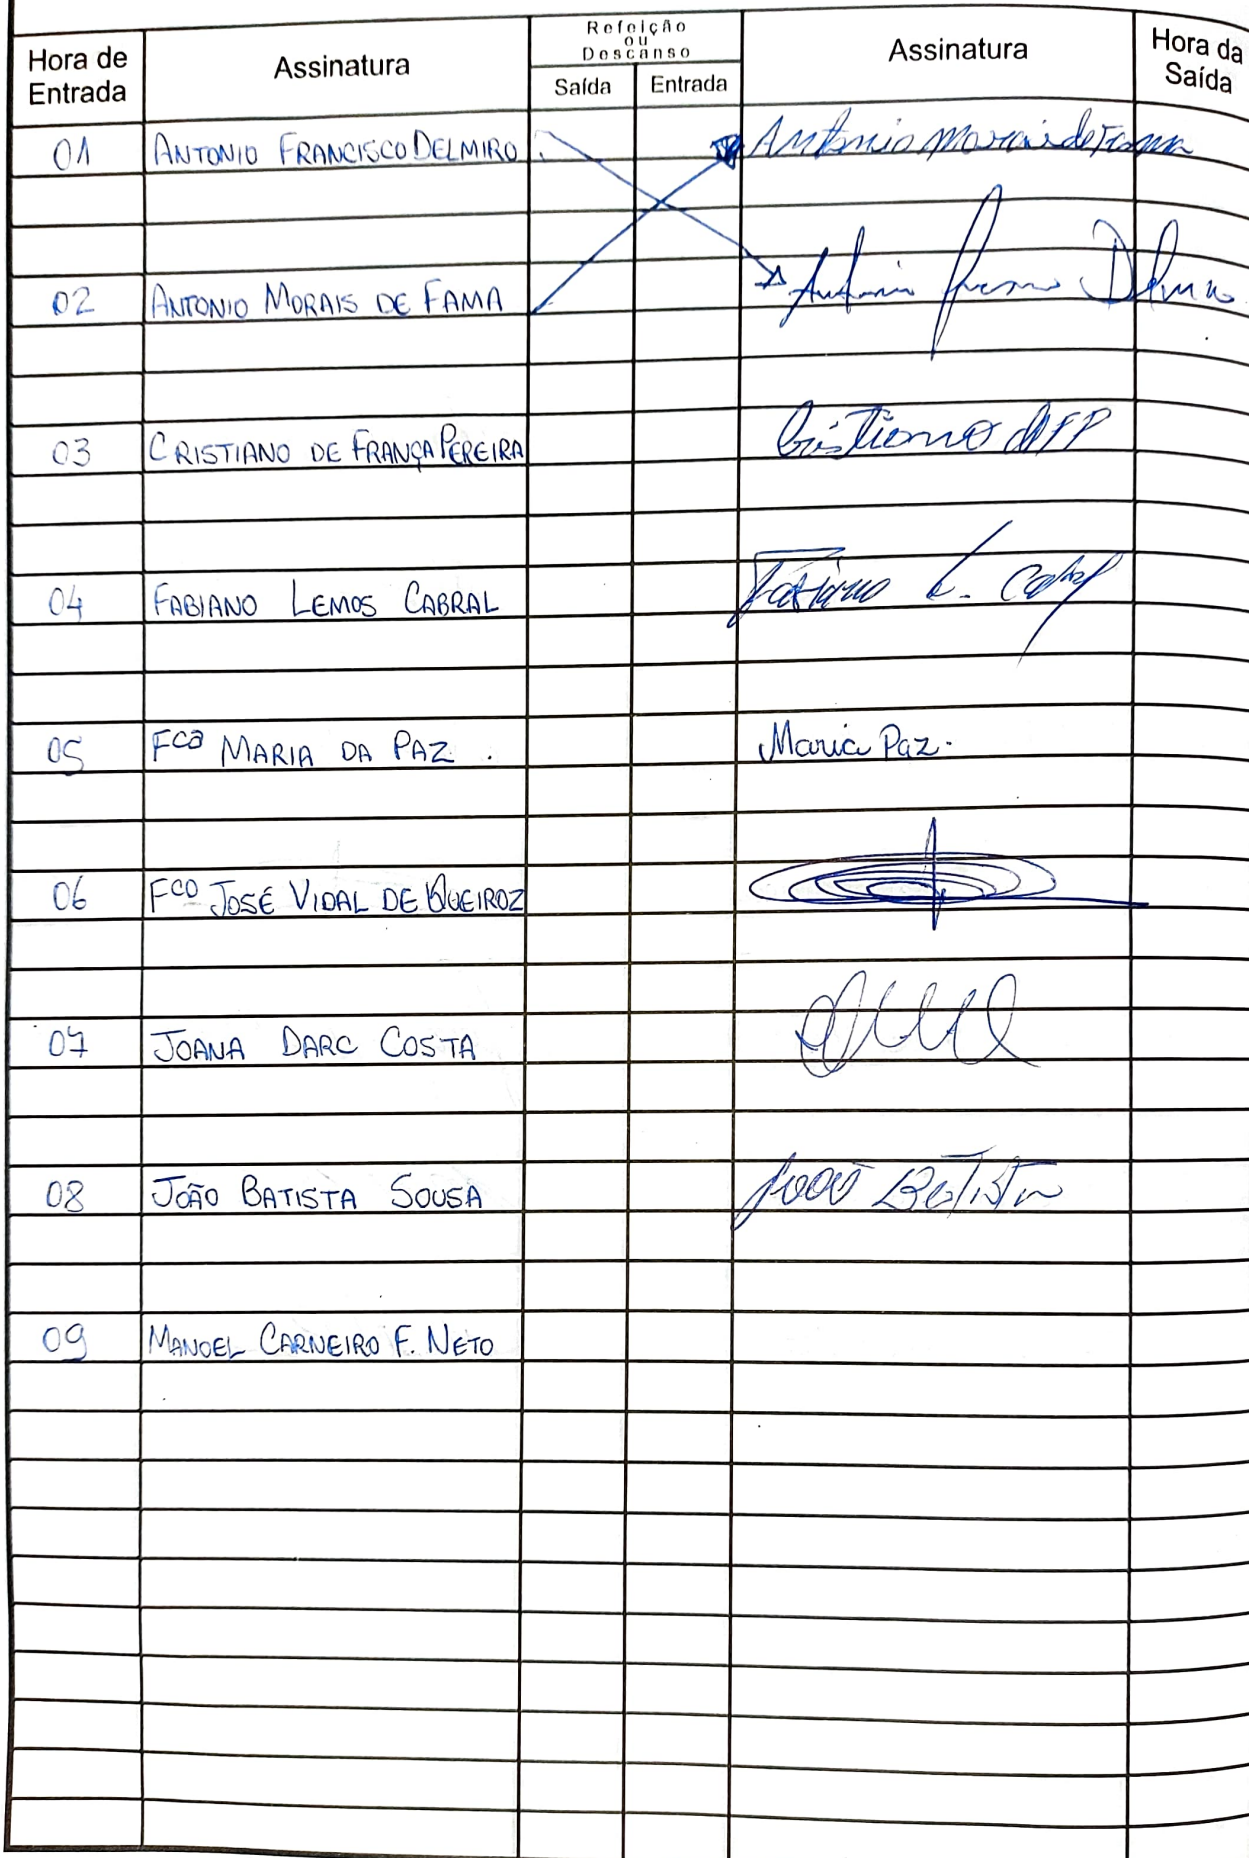 Hora de Entrada
Assinatura
Refeição ou Descanso
Saída
Entrada
Assinatura
Hora da Saída
01 ANTONIO FRANCISCO DELMIRO Antonio Morais de Fama
02 ANTONIO MORAIS DE FAMA Antonio Delmiro
03 CRISTIANO DE FRANÇA PEREIRA Cristiano dFP
04 FABIANO LEMOS CABRAL Fabiano L. Cabral
05 Fca MARIA DA PAZ . Maria Paz.
06 Fco JOSÉ VIDAL DE QUEIROZ
07 JOANA DARC COSTA
08 JOÃO BATISTA SOUSA João Batista
09 MANOEL CARNEIRO F. NETO